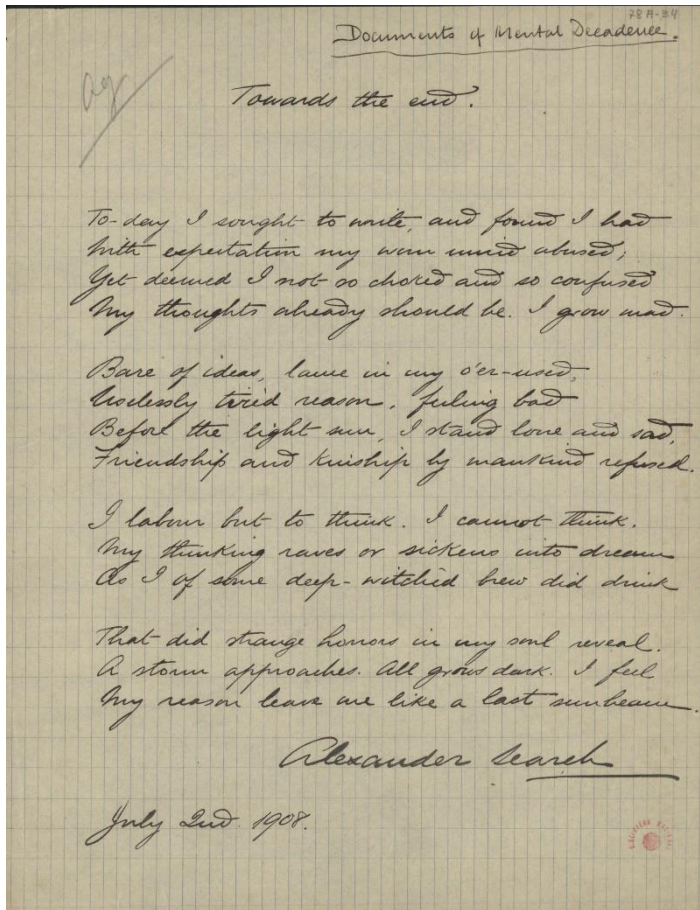 78A-34
Documents of Mental Decadence.
ag
Towards the end.
To-day I sought to write, and found I had
With expectation my worn mind abused;
Yet deemed I not so choked and so confused
My thoughts already should be. I grow mad.
Bare of ideas, lame in my o'er-used,
Uselessly tired reason, feeling bad
Before the light sun, I stand lone and sad,
Friendship and kinship by mankind refused.
I labour but to think. I cannot think.
My thinking raves or sickens into dream
As I of some deep-witched brew did drink
That did strange horrors in my soul reveal.
A storm approaches. All grows dark. I feel
My reason leave me like a last sunbeam.
Alexander Search
July 2nd. 1908.